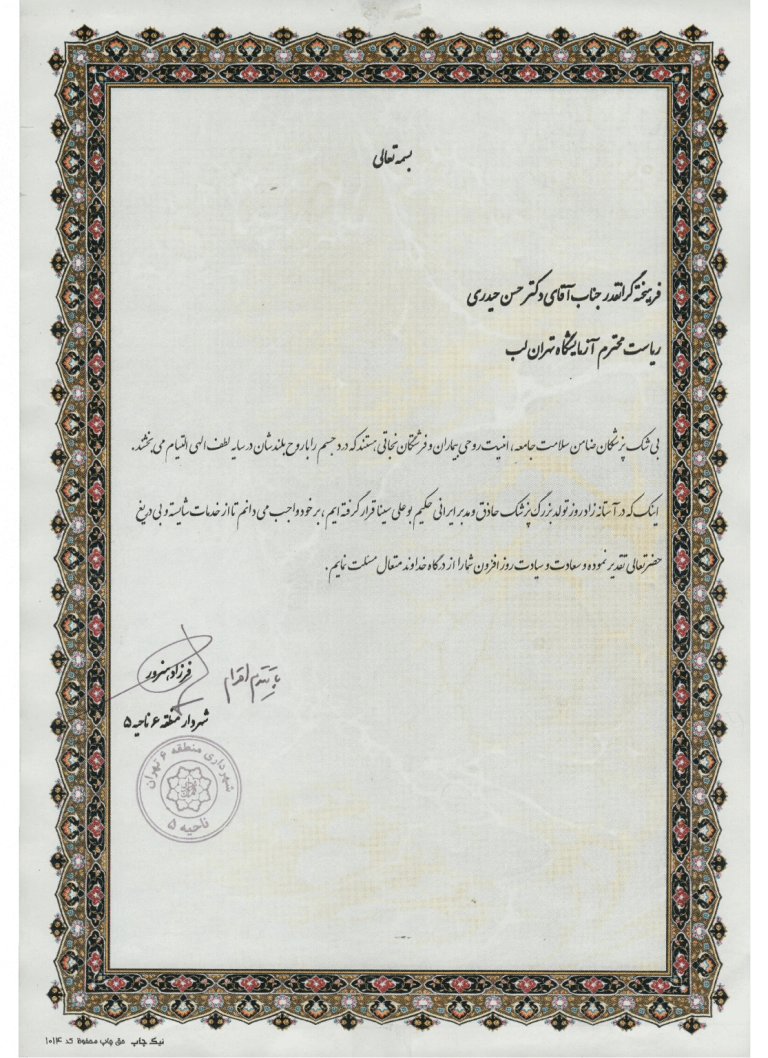 بسمه تعالی
فرهیخته گرانقدر جناب آقای دکتر حسن حیدری
ریاست محترم آزمایشگاه تهران لب
بی شک پزشکان ضامن سلامت جامعه، امنیت روحی بیماران و فرشتگان نجاتی هستند که درد جسم را با روح بلندشان در سایه لطف الهی التیام می بخشند.
اینک که در آستانه زادروز تولد بزرگ پزشک حاذق و مدبر ایرانی حکیم بوعلی سینا قرار گرفته ایم، بر خود واجب می دانم تا از خدمات شایسته و بی دریغ
حضرتعالی تقدیر نموده و سعادت و سیادت روز افزون شما را از درگاه خداوند متعال مسئلت نمایم.
با تقدیم احترام
فرزاد هنرور
شهردار منطقه ۶ ناحیه ۵
شهرداری منطقه ۶ تهران
ناحیه ۵
نیک چاپ حق چاپ محفوظ کد ۱۰۱۴